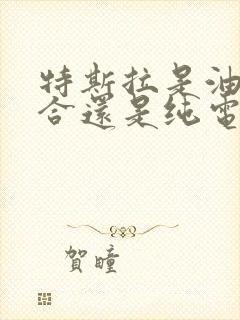 特斯拉是油
合還是纯電
賀瞳